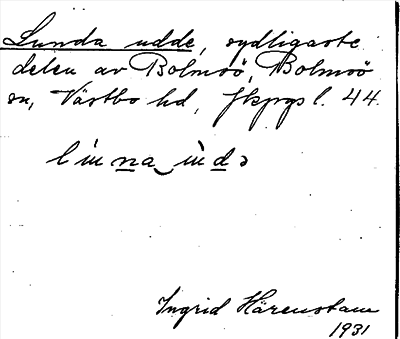 Lunda udde, sydligaste
delen av Bolmsö, Bolmsö
sn, Västbo hd, Jkpgs l. 44.
Ingrid Härenstam
1931